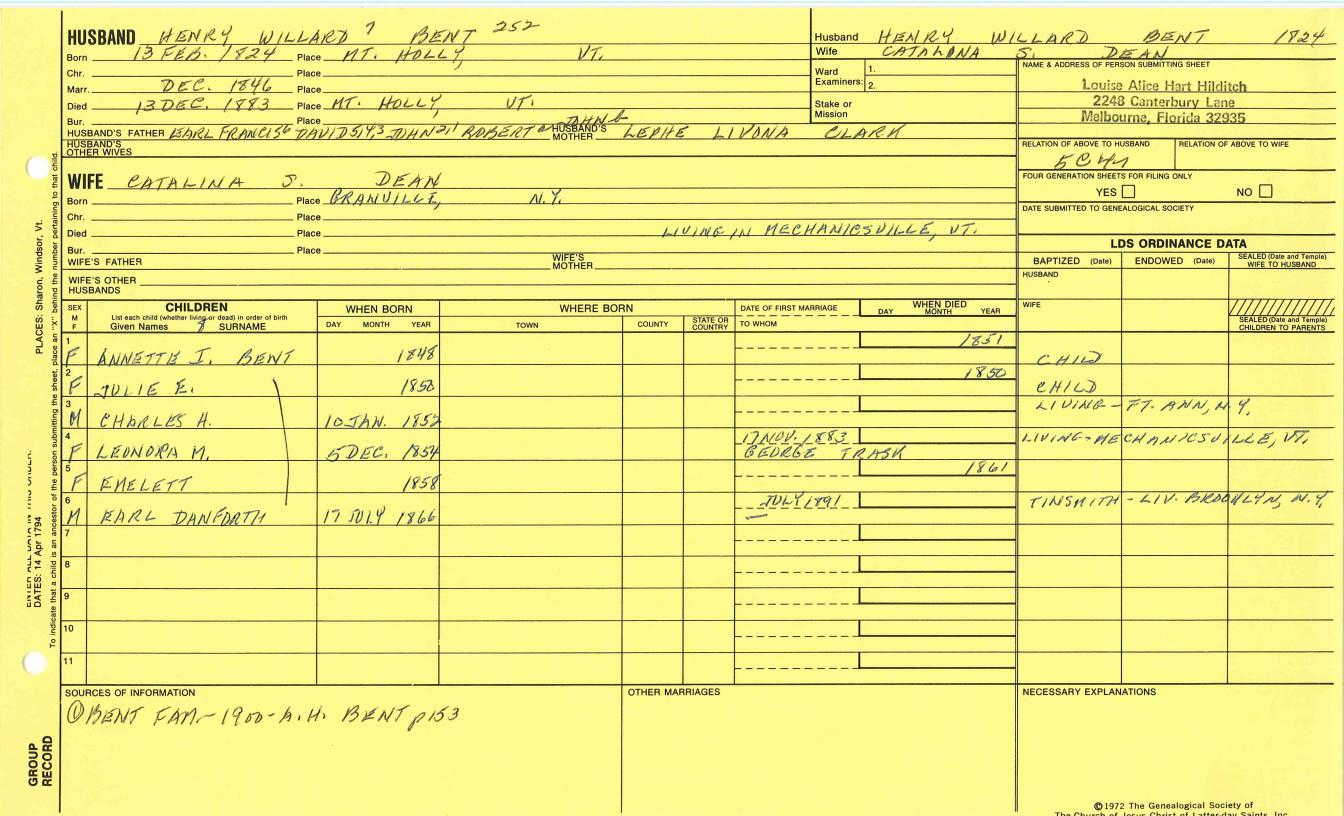 HUSBAND HENRY WILLARD 7 BENT 252
Born 13 FEB. 1824 Place MT. HOLLY, VT.
Chr. Place
Marr. DEC. 1846 Place
Died 13 DEC. 1883 Place MT. HOLLY, VT.
Bur. Place
HUSBAND'S FATHER EARL FRANCIS6 DAVID5,4,3 JOHN2,1 ROBERT a JOHN b HUSBAND'S MOTHER LEPHE LIVONA CLARK
HUSBAND'S OTHER WIVES
WIFE CATALINA S. DEAN
Born Place GRANVILLE, N.Y.
Chr. Place
Died Place LIVING IN MECHANICSVILLE, VT.
Bur. Place
WIFE'S FATHER WIFE'S MOTHER
WIFE'S OTHER HUSBANDS
Husband HENRY WILLARD BENT 1824
Wife CATALONA S. DEAN
Ward Examiners: 1.
2.
Stake or Mission
NAME & ADDRESS OF PERSON SUBMITTING SHEET
Louise Alice Hart Hilditch
2248 Canterbury Lane
Melbourne, Florida 32935
RELATION OF ABOVE TO HUSBAND RELATION OF ABOVE TO WIFE
5C4r
FOUR GENERATION SHEETS FOR FILING ONLY
YES NO
DATE SUBMITTED TO GENEALOGICAL SOCIETY
LDS ORDINANCE DATA
BAPTIZED (Date) ENDOWED (Date) SEALED (Date and Temple) WIFE TO HUSBAND
HUSBAND
WIFE
SEALED (Date and Temple) CHILDREN TO PARENTS
SEX M F CHILDREN WHEN BORN WHERE BORN DATE OF FIRST MARRIAGE WHEN DIED
List each child (whether living or dead) in order of birth
Given Names 8 SURNAME DAY MONTH YEAR TOWN COUNTY STATE OR COUNTRY TO WHOM DAY MONTH YEAR
1 F ANNETTE I. BENT 1848 1851 CHILD
2 F JULIE E. 1850 1850 CHILD
3 M CHARLES H. 10 JAN. 1852 LIVING - FT. ANN, N.Y.
4 F LEONORA M. 5 DEC. 1854 17 NOV. 1883 GEORGE TRASK LIVING - MECHANICSVILLE, VT.
5 F EMELETT 1858 1861
6 M EARL DANFORTH 17 JULY 1866 JULY 1891 TINSMITH - LIV. BROOKLYN, N.Y.
7
8
9
10
11
SOURCES OF INFORMATION
① BENT FAM - 1900 - A.H. BENT p153
OTHER MARRIAGES
NECESSARY EXPLANATIONS
©1972 The Genealogical Society of
The Church of Jesus Christ of Latter-day Saints, Inc.
PLACES: Sharon, Windsor, Vt.
ENTER ALL DATA IN THIS ORDER:
DATES: 14 Apr 1794
To indicate that a child is an ancestor of the person submitting the sheet, place an "X" behind the number pertaining to that child.
GROUP RECORD